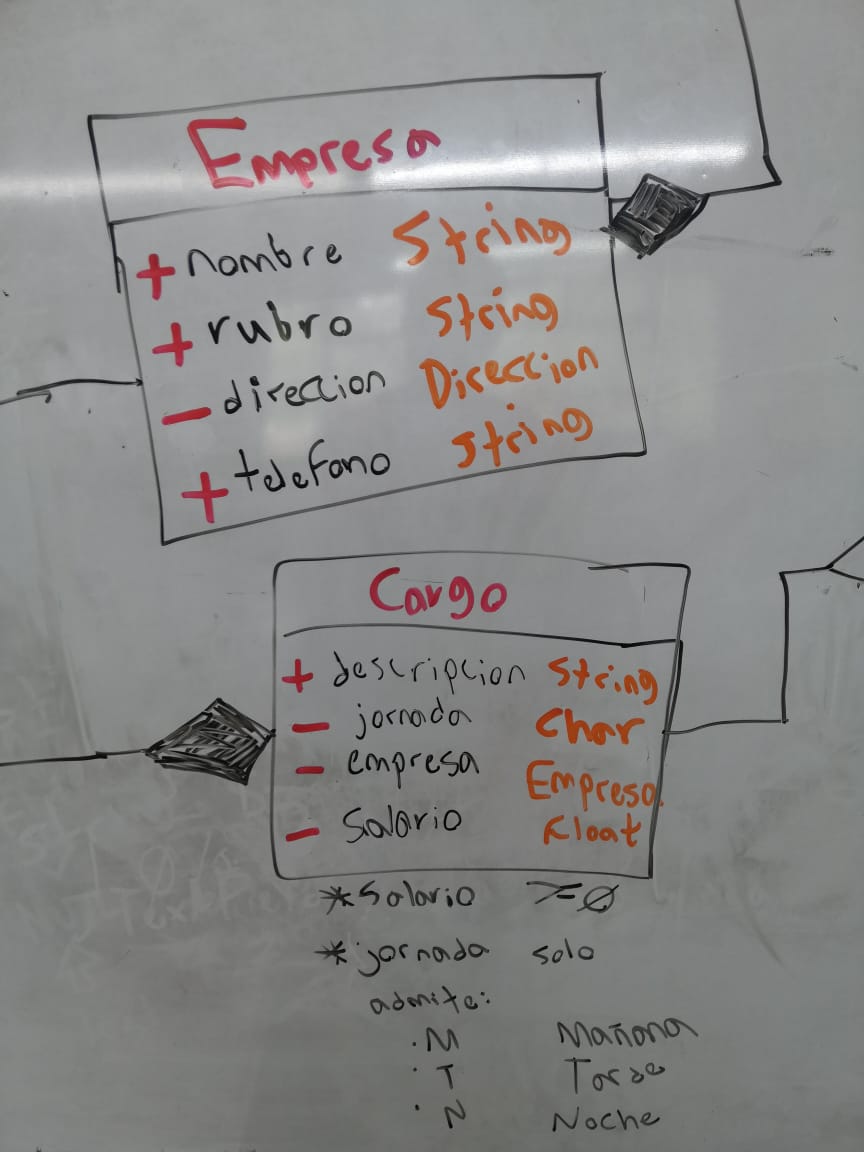 Empresa
+ nombre String
+ rubro String
- direccion Direccion
+ telefono String
Cargo
+ descripcion String
- jornada Char
- empresa Empresa
- Salario Float
*Salario >=0
*jornada solo
admite:
.M Mañana
.T Tarde
.N Noche